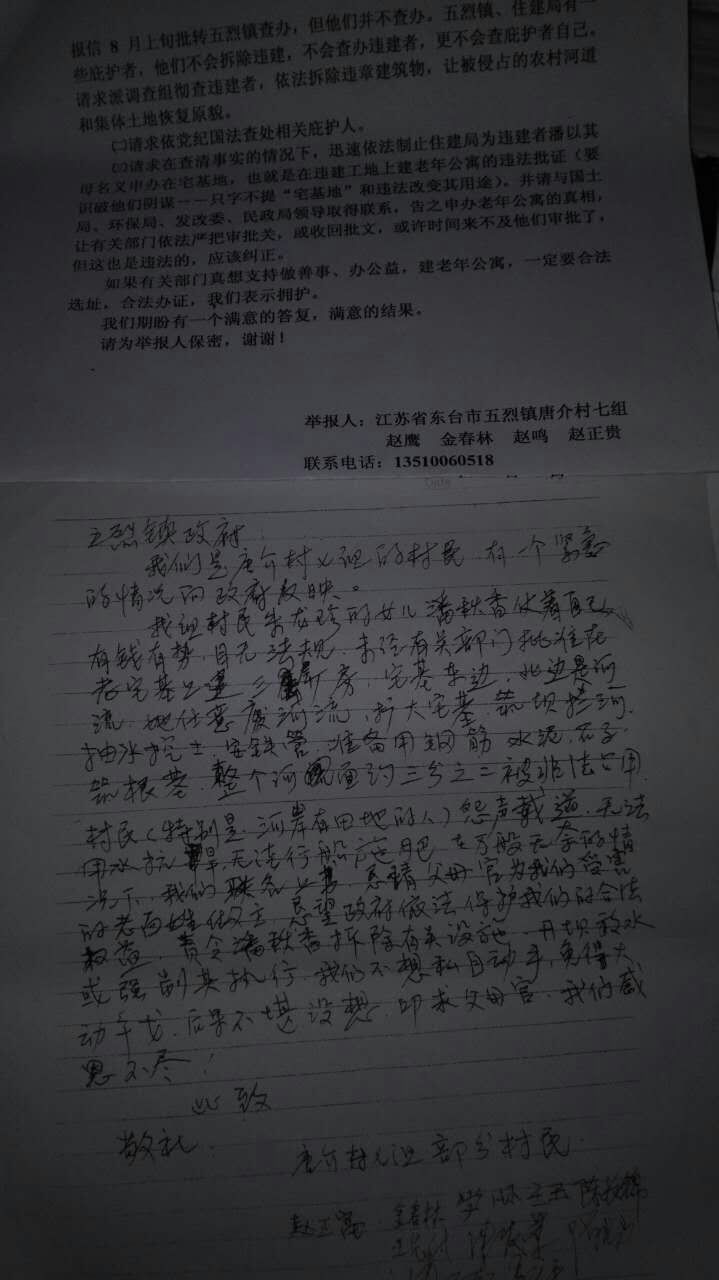 报信 8 月上旬批转五烈镇查办，但他们并不查办。五烈镇、住建局有一
些庇护者，他们不会拆除违建，不会查办违建者，更不会查庇护者自己。
请求派调查组彻查违建者，依法拆除违章建筑物，让被侵占的农村河道
和集体土地恢复原貌。
㈡请求依党纪国法查处相关庇护人。
㈢请求在查清事实的情况下，迅速依法制止住建局为违建者潘以其
母名义申办在宅基地，也就是在违建工地上建老年公寓的违法批证（要
识破他们阴谋－－只字不提“宅基地”和违法改变其用途）。并请与国土
局、环保局、发改委、民政局领导取得联系，告之申办老年公寓的真相，
让有关部门依法严把审批关，或收回批文，或许时间来不及他们审批了，
但这也是违法的，应该纠正。
如果有关部门真想支持做善事、办公益，建老年公寓，一定要合法
选址，合法办证，我们表示拥护。
我们期盼有一个满意的答复，满意的结果。
请为举报人保密，谢谢！
举报人：江苏省东台市五烈镇唐介村七组
赵鹰 金春林 赵鸣 赵正贵
联系电话：13510060518
Date
五烈镇政府：
我们是唐介村七组的村民 有一个紧急
的情况向政府反映。
我组村民朱龙珍的女儿潘秋香仗着自己
有钱有势，目无法规，未经有关部门批准在
老宅基上建新房，宅基东边、北边是河
流，她任意废河流，扩大宅基，筑坝拦河，
抽水挖土，安铁管，准备用钢筋 水泥、石子
筑根基，整个河面约三分之二被非法占用
村民（特别是河岸有田地的人）怨声载道，无法
用水抗旱，无法行船施肥 在万般无奈的情
况下，我们联名上书，恳请父母官为我们受害
的老百姓做主，恳望政府依法保护我们的合法
权益，责令潘秋香拆除有关设施，开坝放水
或强制其执行，我们不想私自动手，免得大
动干戈，后果不堪设想，叩求父母官，我们感
恩不尽！
此致
敬礼
唐介村七组部分村民
赵正富 金春林